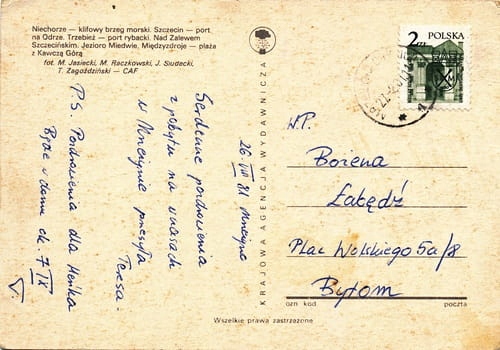 Niechorze — klifowy brzeg morski. Szczecin — port
na Odrze. Trzebież — port rybacki. Nad Zalewem
Szczecińskim. Jezioro Miedwie, Międzyzdroje — plaża
z Kawczą Górą
fot. M. Jasiecki, M. Raczkowski, J. Siudecki,
T. Zagoździński — CAF
26 VIII 81
Serdeczne pozdrowienia
z pobytu na wczasach
w przesyła
Teresa
P.S. Pozdrowienia dla Heńka
Będę w domu ok. 7 IX
T.
KRAJOWA AGENCJA WYDAWNICZA
2 ZŁ POLSKA
W.P.
Bożena
Łabędź
Plac Wolskiego 5a/8
Bytom
ozn kod poczta
Wszelkie prawa zastrzeżone